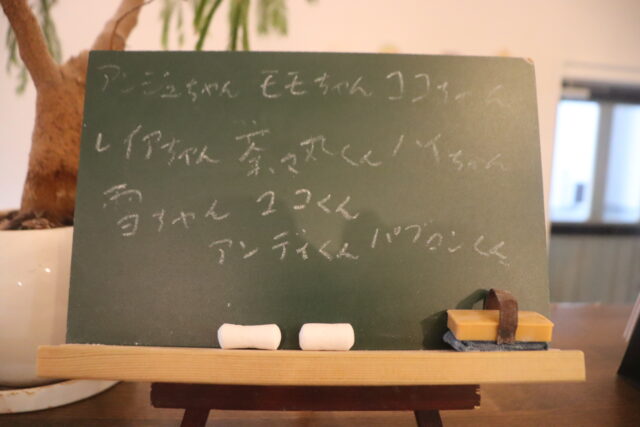 アンジュちゃん モモちゃん ココちゃん
レイアちゃん 茶々丸くん ハイちゃん
雪ちゃん ココくん
アンディくん パブロンくん